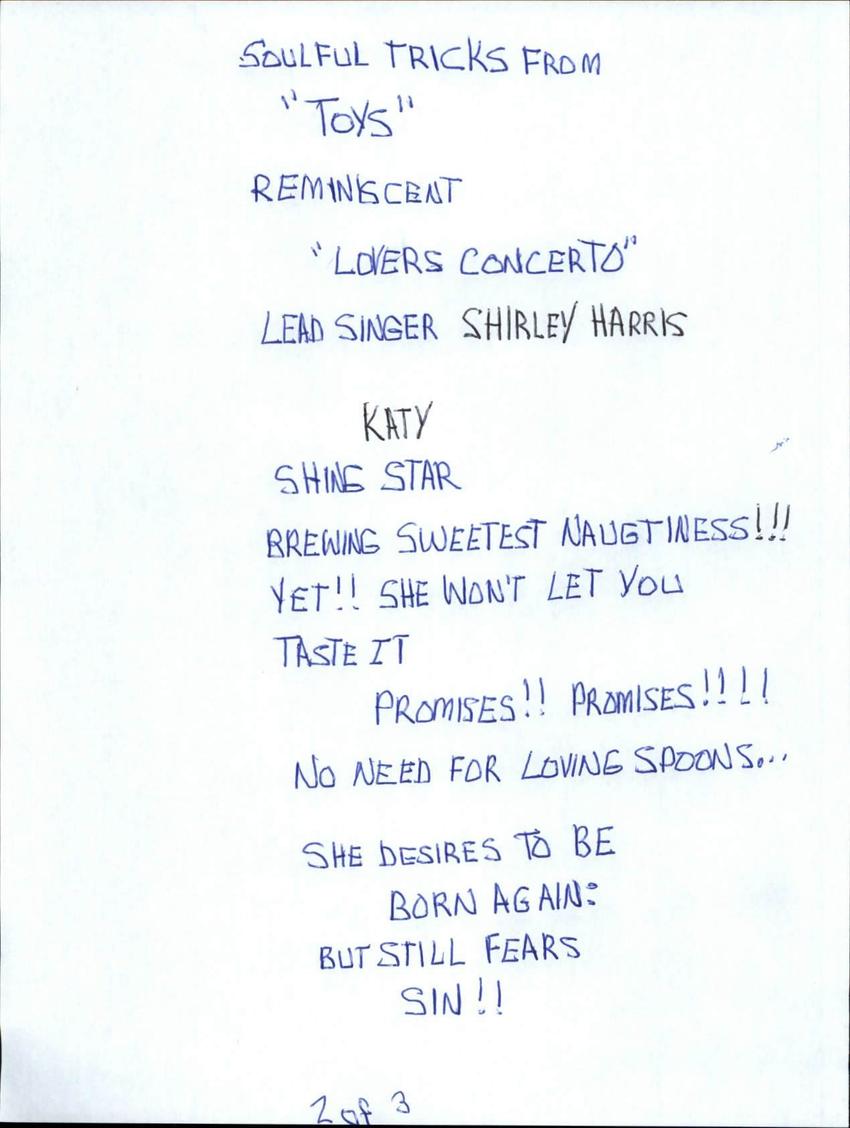 SOULFUL TRICKS FROM
"TOYS"
REMINISCENT
"LOVERS CONCERTO"
LEAD SINGER SHIRLEY HARRIS
KATY
SHING STAR
BREWING SWEETEST NAUGTINESS!!!
YET!! SHE WON'T LET YOU
TASTE IT
PROMISES!! PROMISES!!!!
NO NEED FOR LOVING SPOONS...
SHE DESIRES TO BE
BORN AGAIN:
BUT STILL FEARS
SIN!!
2 of 3